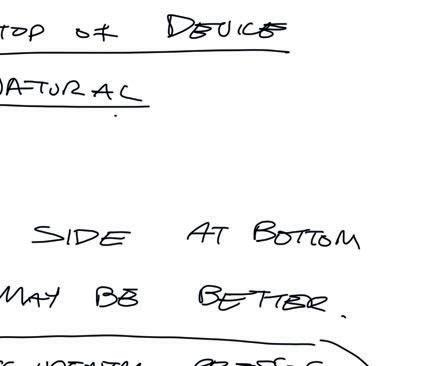 TOP OF DEVICE
NATURAL
SIDE AT BOTTOM
MAY BE BETTER.